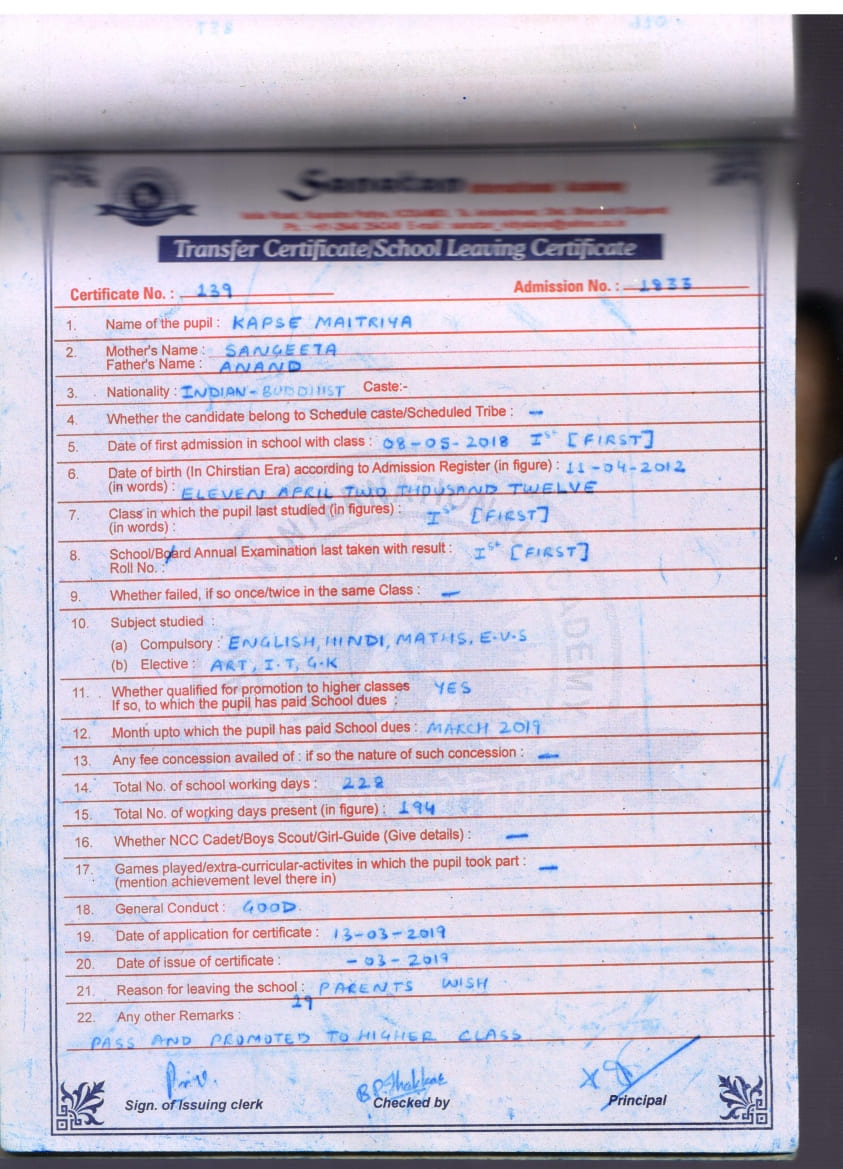 Sanatan International Academy
Transfer Certificate/School Leaving Certificate
Certificate No. : 139 Admission No. : 1833
1. Name of the pupil : KAPSE MAITRIYA
2. Mother's Name : SANGEETA
Father's Name : ANAND
3. Nationality : INDIAN - BUDDHIST Caste:-
4. Whether the candidate belong to Schedule caste/Scheduled Tribe : —
5. Date of first admission in school with class : 08-05-2018 Ist [FIRST]
6. Date of birth (In Chirstian Era) according to Admission Register (in figure) : 11-04-2012
(in words) : ELEVEN APRIL TWO THOUSAND TWELVE
7. Class in which the pupil last studied (in figures) : Ist [FIRST]
(in words) :
8. School/Board Annual Examination last taken with result : Ist [FIRST]
Roll No. :
9. Whether failed, if so once/twice in the same Class : —
10. Subject studied :
(a) Compulsory : ENGLISH, HINDI, MATHS, E.V.S
(b) Elective : ART, I.T, G.K
11. Whether qualified for promotion to higher classes YES
If so, to which the pupil has paid School dues :
12. Month upto which the pupil has paid School dues : MARCH 2019
13. Any fee concession availed of : if so the nature of such concession : —
14. Total No. of school working days : 228
15. Total No. of working days present (in figure) : 194
16. Whether NCC Cadet/Boys Scout/Girl-Guide (Give details) : —
17. Games played/extra-curricular-activites in which the pupil took part : —
(mention achievement level there in)
18. General Conduct : GOOD.
19. Date of application for certificate : 13-03-2019
20. Date of issue of certificate : -03-2019
21. Reason for leaving the school : PARENTS WISH
29
22. Any other Remarks :
PASS AND PROMOTED TO HIGHER CLASS
B.P.Thakkar
Sign. of Issuing clerk Checked by Principal